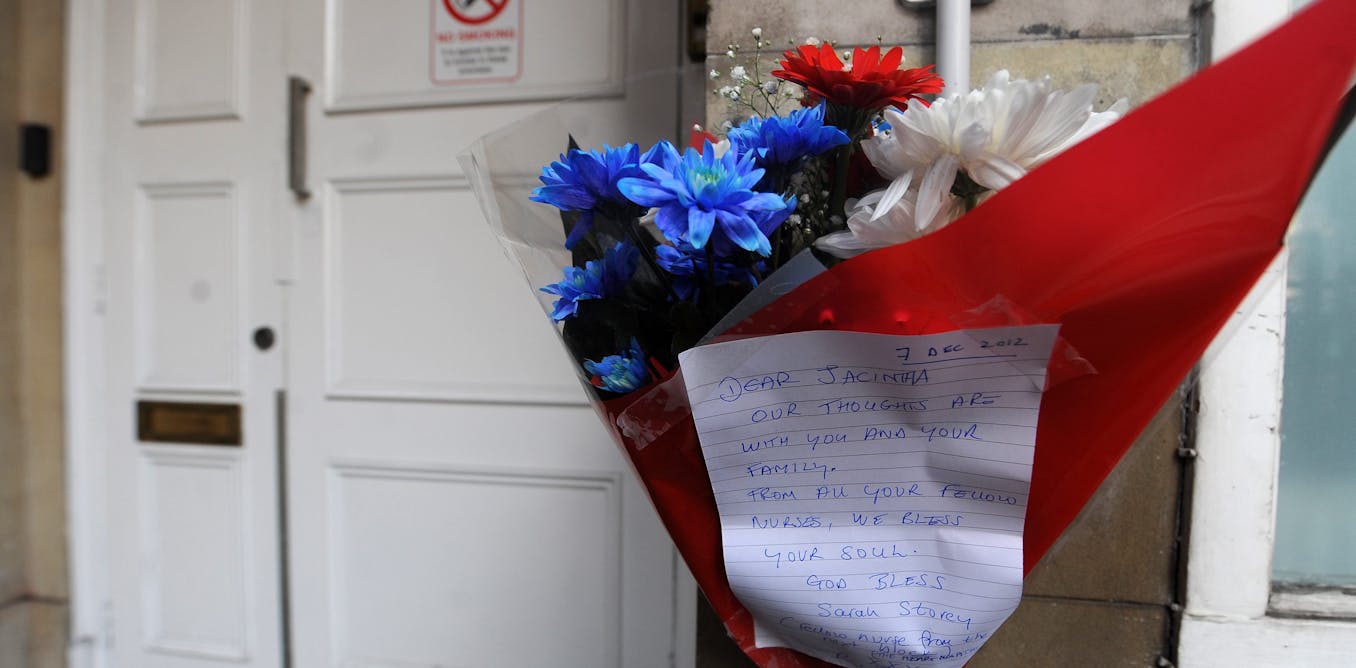 NO SMOKING
7 DEC 2012
DEAR JACINTHA
OUR THOUGHTS ARE
WITH YOU AND YOUR
FAMILY.
FROM ALL YOUR FELLOW
NURSES, WE BLESS
YOUR SOUL.
GOD BLESS
Sarah Storey
(Fellow nurse from the